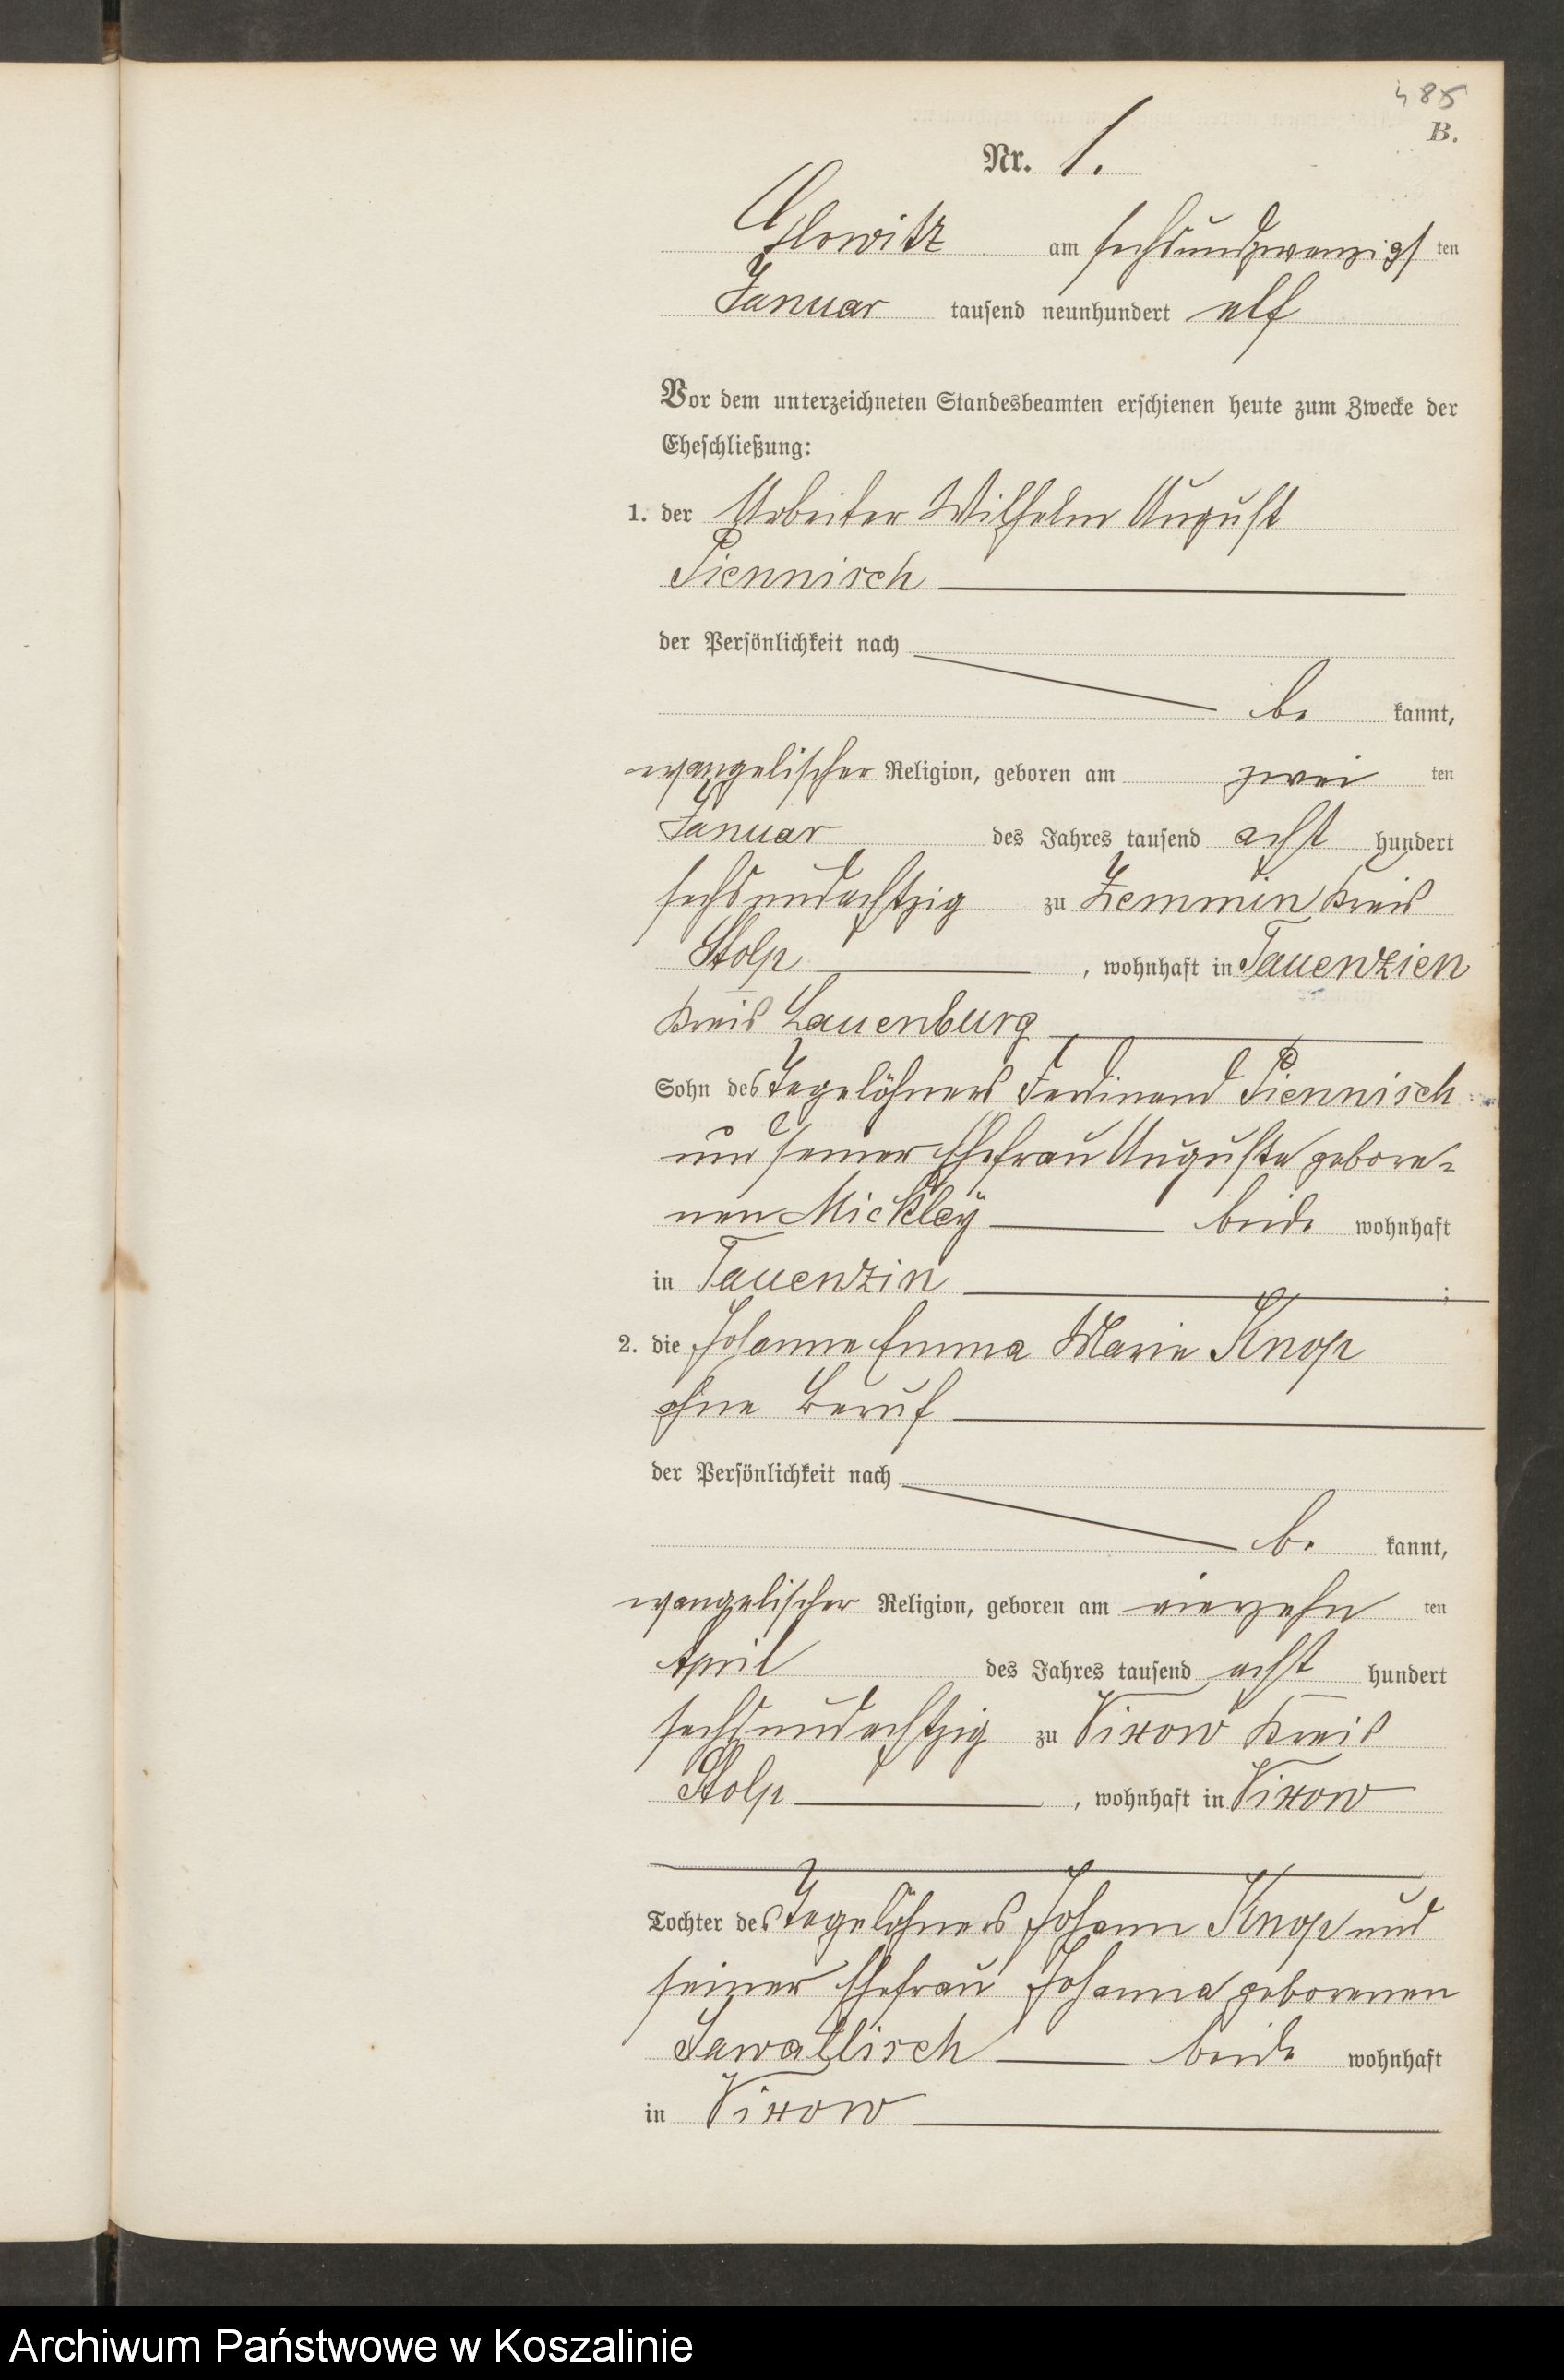 485
B.
Nr. 1.
Glowitz am sechsundzwanzigsten
Januar tausend neunhundert elf
Vor dem unterzeichneten Standesbeamten erschienen heute zum Zwecke der
Eheschließung:
1. der Arbeiter Wilhelm August
Piennisch
der Persönlichkeit nach
be kannt,
evangelischer Religion, geboren am zwei ten
Januar des Jahres tausend acht hundert
sechsundachtzig zu Zemmin Kreis
Stolp, wohnhaft in Tauenzien
Kreis Lauenburg
Sohn des Tagelöhners Ferdinand Piennisch
und seiner Ehefrau Auguste gebore-
nen Mickley beide wohnhaft
in Tauenzin ;
2. die Johanne Emma Marie Knop
ohne Beruf
der Persönlichkeit nach
be kannt,
evangelischer Religion, geboren am vierzehn ten
April des Jahres tausend acht hundert
sechsundachtzig zu Vixow Kreis
Stolp, wohnhaft in Vixow
Tochter des Tagelöhners Johann Knop und
seiner Ehefrau Johanna geborenen
Sawallisch beide wohnhaft
in Vixow
Archiwum Państwowe w Koszalinie